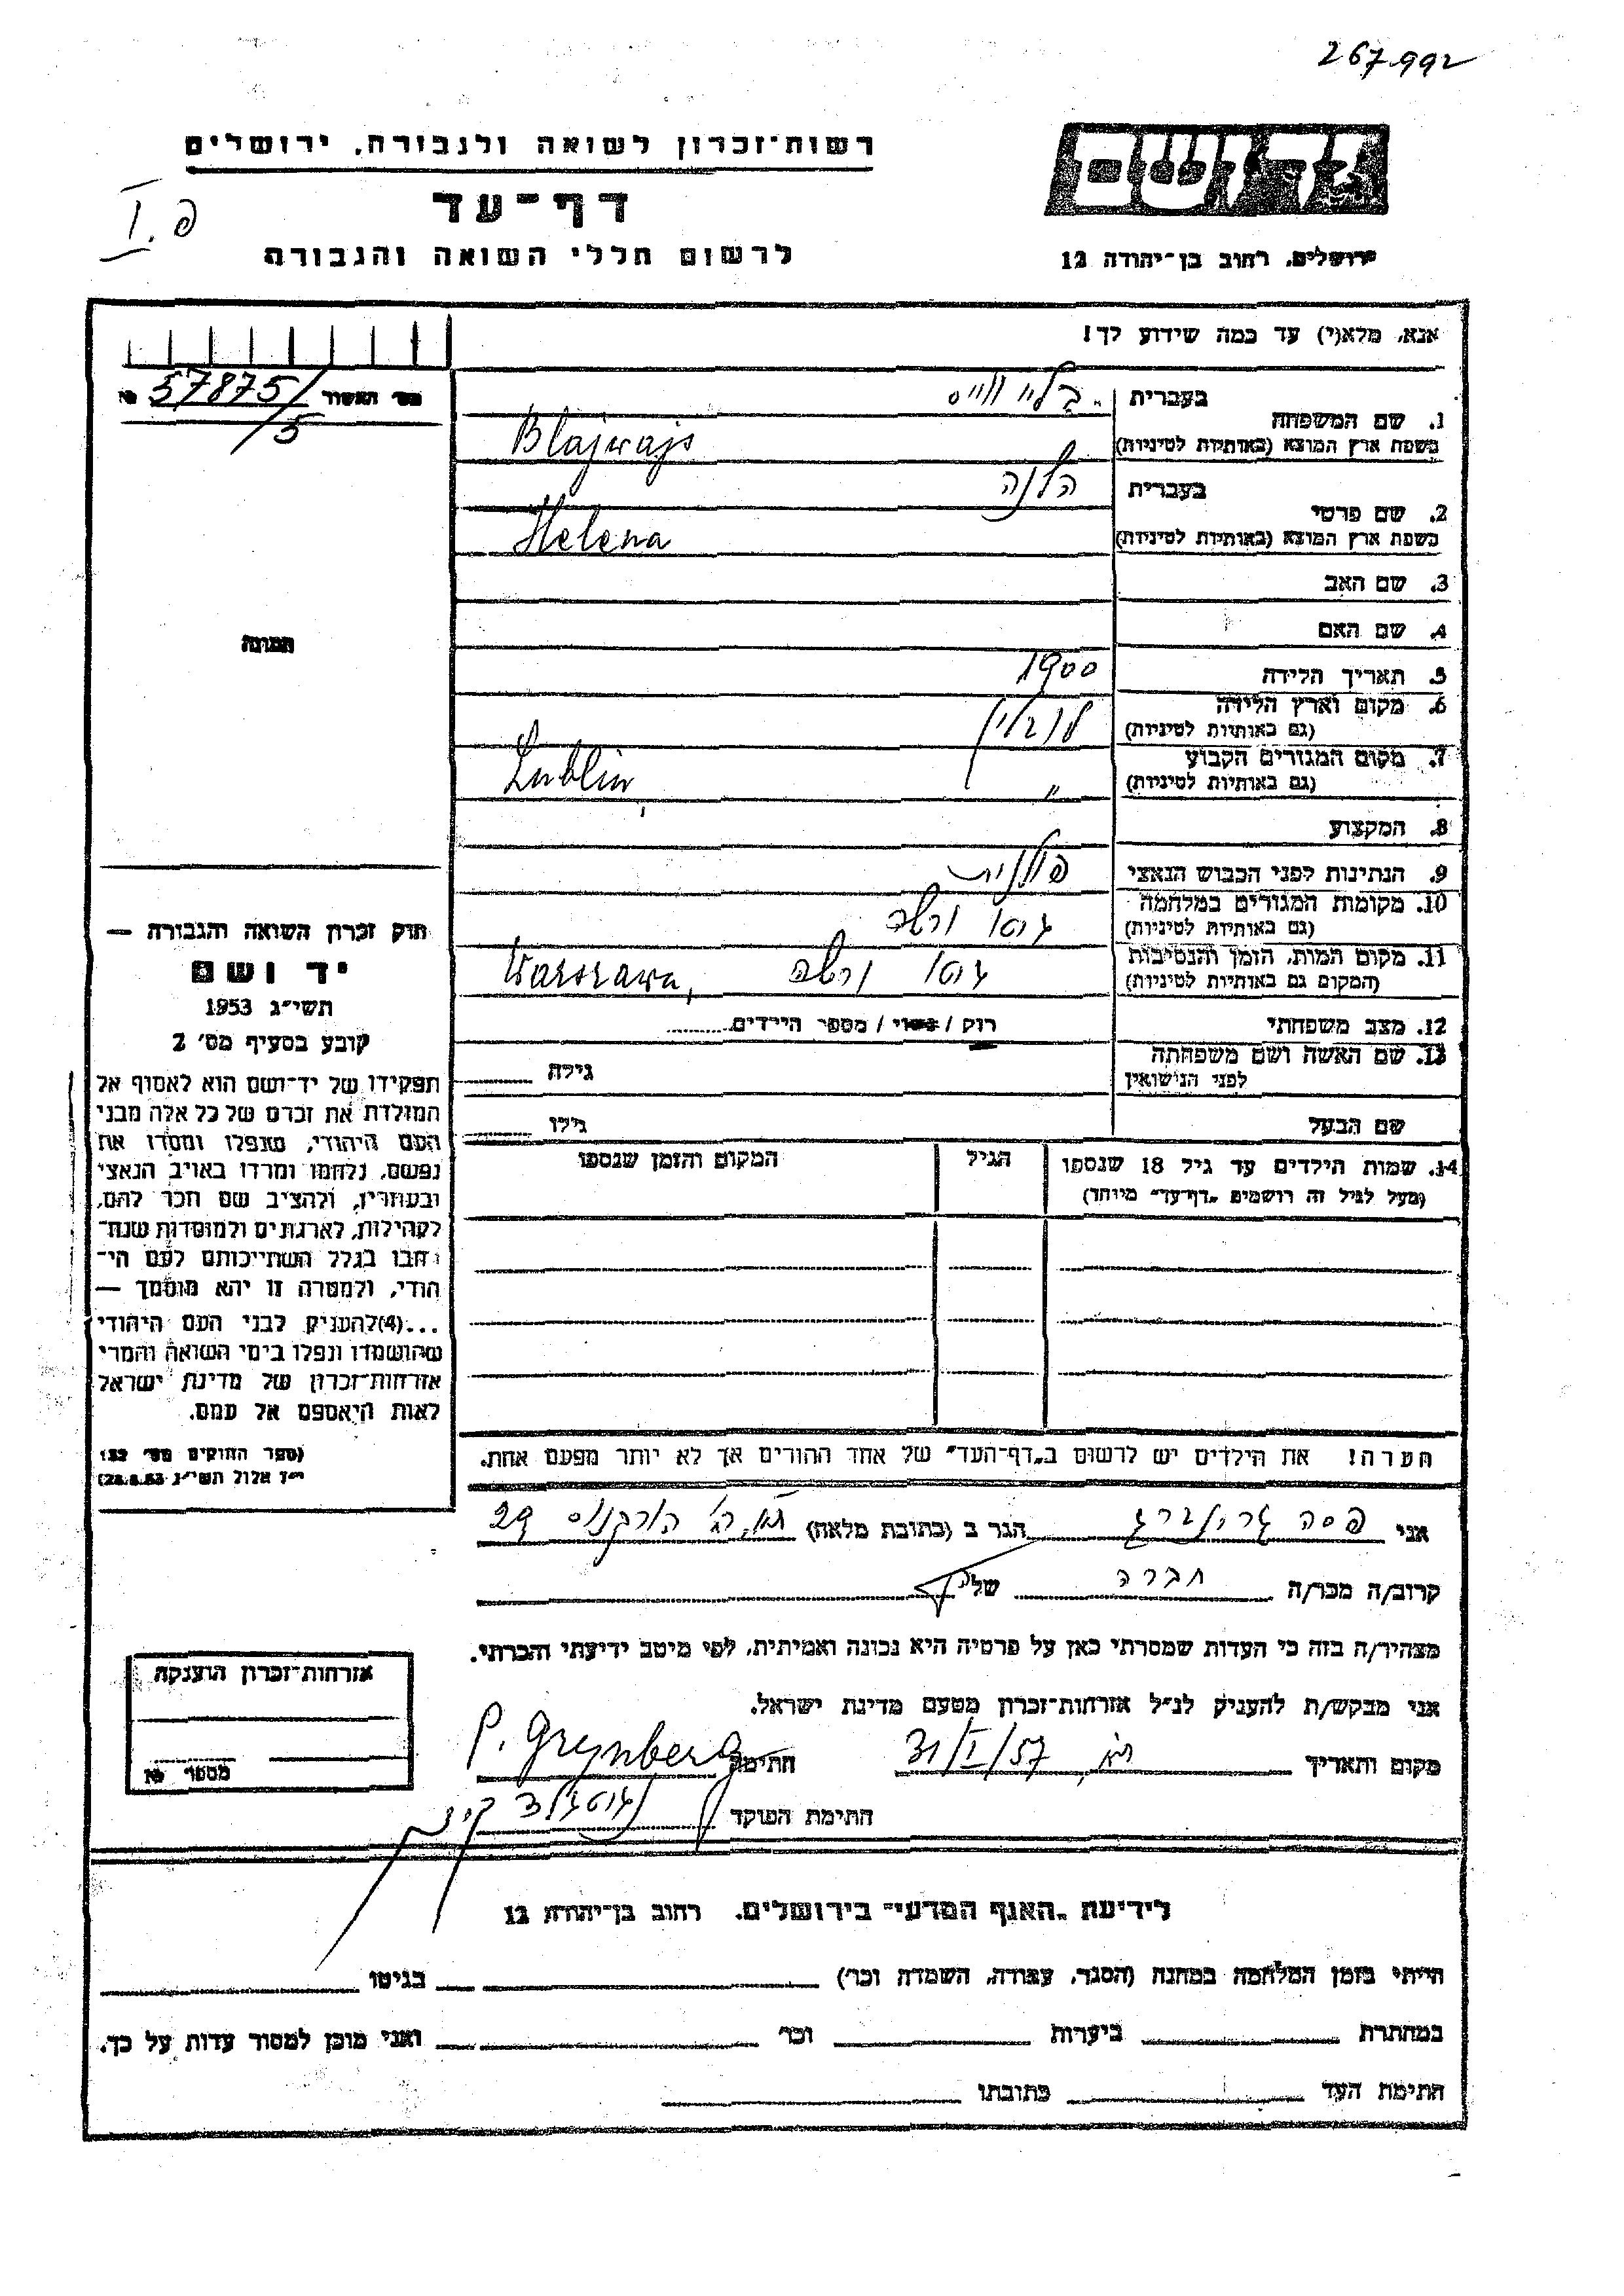 267992
רשות־זכרון לשואה ולגבורה, ירושלים
דף־עד
לרשום חללי השואה והגבורה
פ. I
יד ושם
ירושלים, רחוב בן־יהודה 12
אנא, מלא(י) עד כמה שידוע לך!
מס' האשור 57875/5 №
1. שם המשפחה בעברית בלייווייס
בשפת ארץ המוצא (באותיות לטיניות) Blajwajs
2. שם פרטי בעברית הלנה
בשפת ארץ המוצא (באותיות לטיניות) Helena
3. שם האב
4. שם האם
תמונה
5. תאריך הלידה 1900
6. מקום וארץ הלידה לובלין
(גם באותיות לטיניות)
7. מקום המגורים הקבוע "
(גם באותיות לטיניות) Lublin,
8. המקצוע
9. הנתינות לפני הכבוש הנאצי פולנית
10. מקומות המגורים במלחמה גטו ורשה
(גם באותיות לטיניות)
11. מקום המות, הזמן והנסיבות גטו ורשה
(המקום גם באותיות לטיניות) Warszawa,
12. מצב משפחתי רוק / נשוי / מספר הילדים
13. שם האשה ושם משפחתה גילה
לפני הנישואין
שם הבעל גילו
14. שמות הילדים עד גיל 18 שנספו הגיל המקום והזמן שנספו
(מעל לגיל זה רושמים „דף־עד" מיוחד)
חוק זכרון השואה והגבורה —
יד ושם
תשי״ג 1953
קובע בסעיף מס׳ 2
תפקידו של יד־ושם הוא לאסוף אל
המולדת את זכרם של כל אלה מבני
העם היהודי, שנפלו ומסרו את
נפשם, נלחמו ומרדו באויב הנאצי
ובעוזריו, ולהציב שם וזכר להם,
לקהילות, לארגונים ולמוסדות שנח־
רבו בגלל השתייכותם לעם הי־
הודי, ולמטרה זו יהא מוסמך —
...(4) להעניק לבני העם היהודי
שהושמדו ונפלו בימי השואה והמרי
אזרחות־זכרון של מדינת ישראל
לאות היאספם אל עמם.
(ספר החוקים מס׳ 132
י״ז אלול תשי״ג 28.8.53)
הערה! את הילדים יש לרשום ב„דף־העד" של אחד ההורים אך לא יותר מפעם אחת.
אני פסה גרינברג הגר ב (כתובת מלאה) ת"א, רח' הורקנוס 29
קרוב/ה מכר/ה חברה של
מצהיר/ה בזה כי העדות שמסרתי כאן על פרטיה היא נכונה ואמיתית, לפי מיטב ידיעתי והכרתי.
אני מבקש/ת להעניק לנ״ל אזרחות־זכרון מטעם מדינת ישראל.
מקום ותאריך ת"א, 31/I/57 חתימה P. Grynberg
חתימת הפוקד
אזרחות־זכרון הוענקה
מספר №
לידיעת „האגף המדעי" בירושלים, רחוב בן־יהודה 12
הייתי בזמן המלחמה במחנה (הסגר, עבודה, השמדה וכו׳) בגיטו
במחתרת ביערות וכו׳ ואני מוכן למסור עדות על כך.
חתימת העד כתובתו